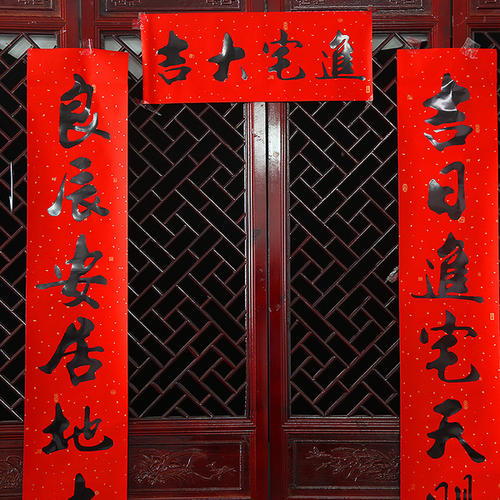 進宅大吉
吉日進宅天
良辰安居地